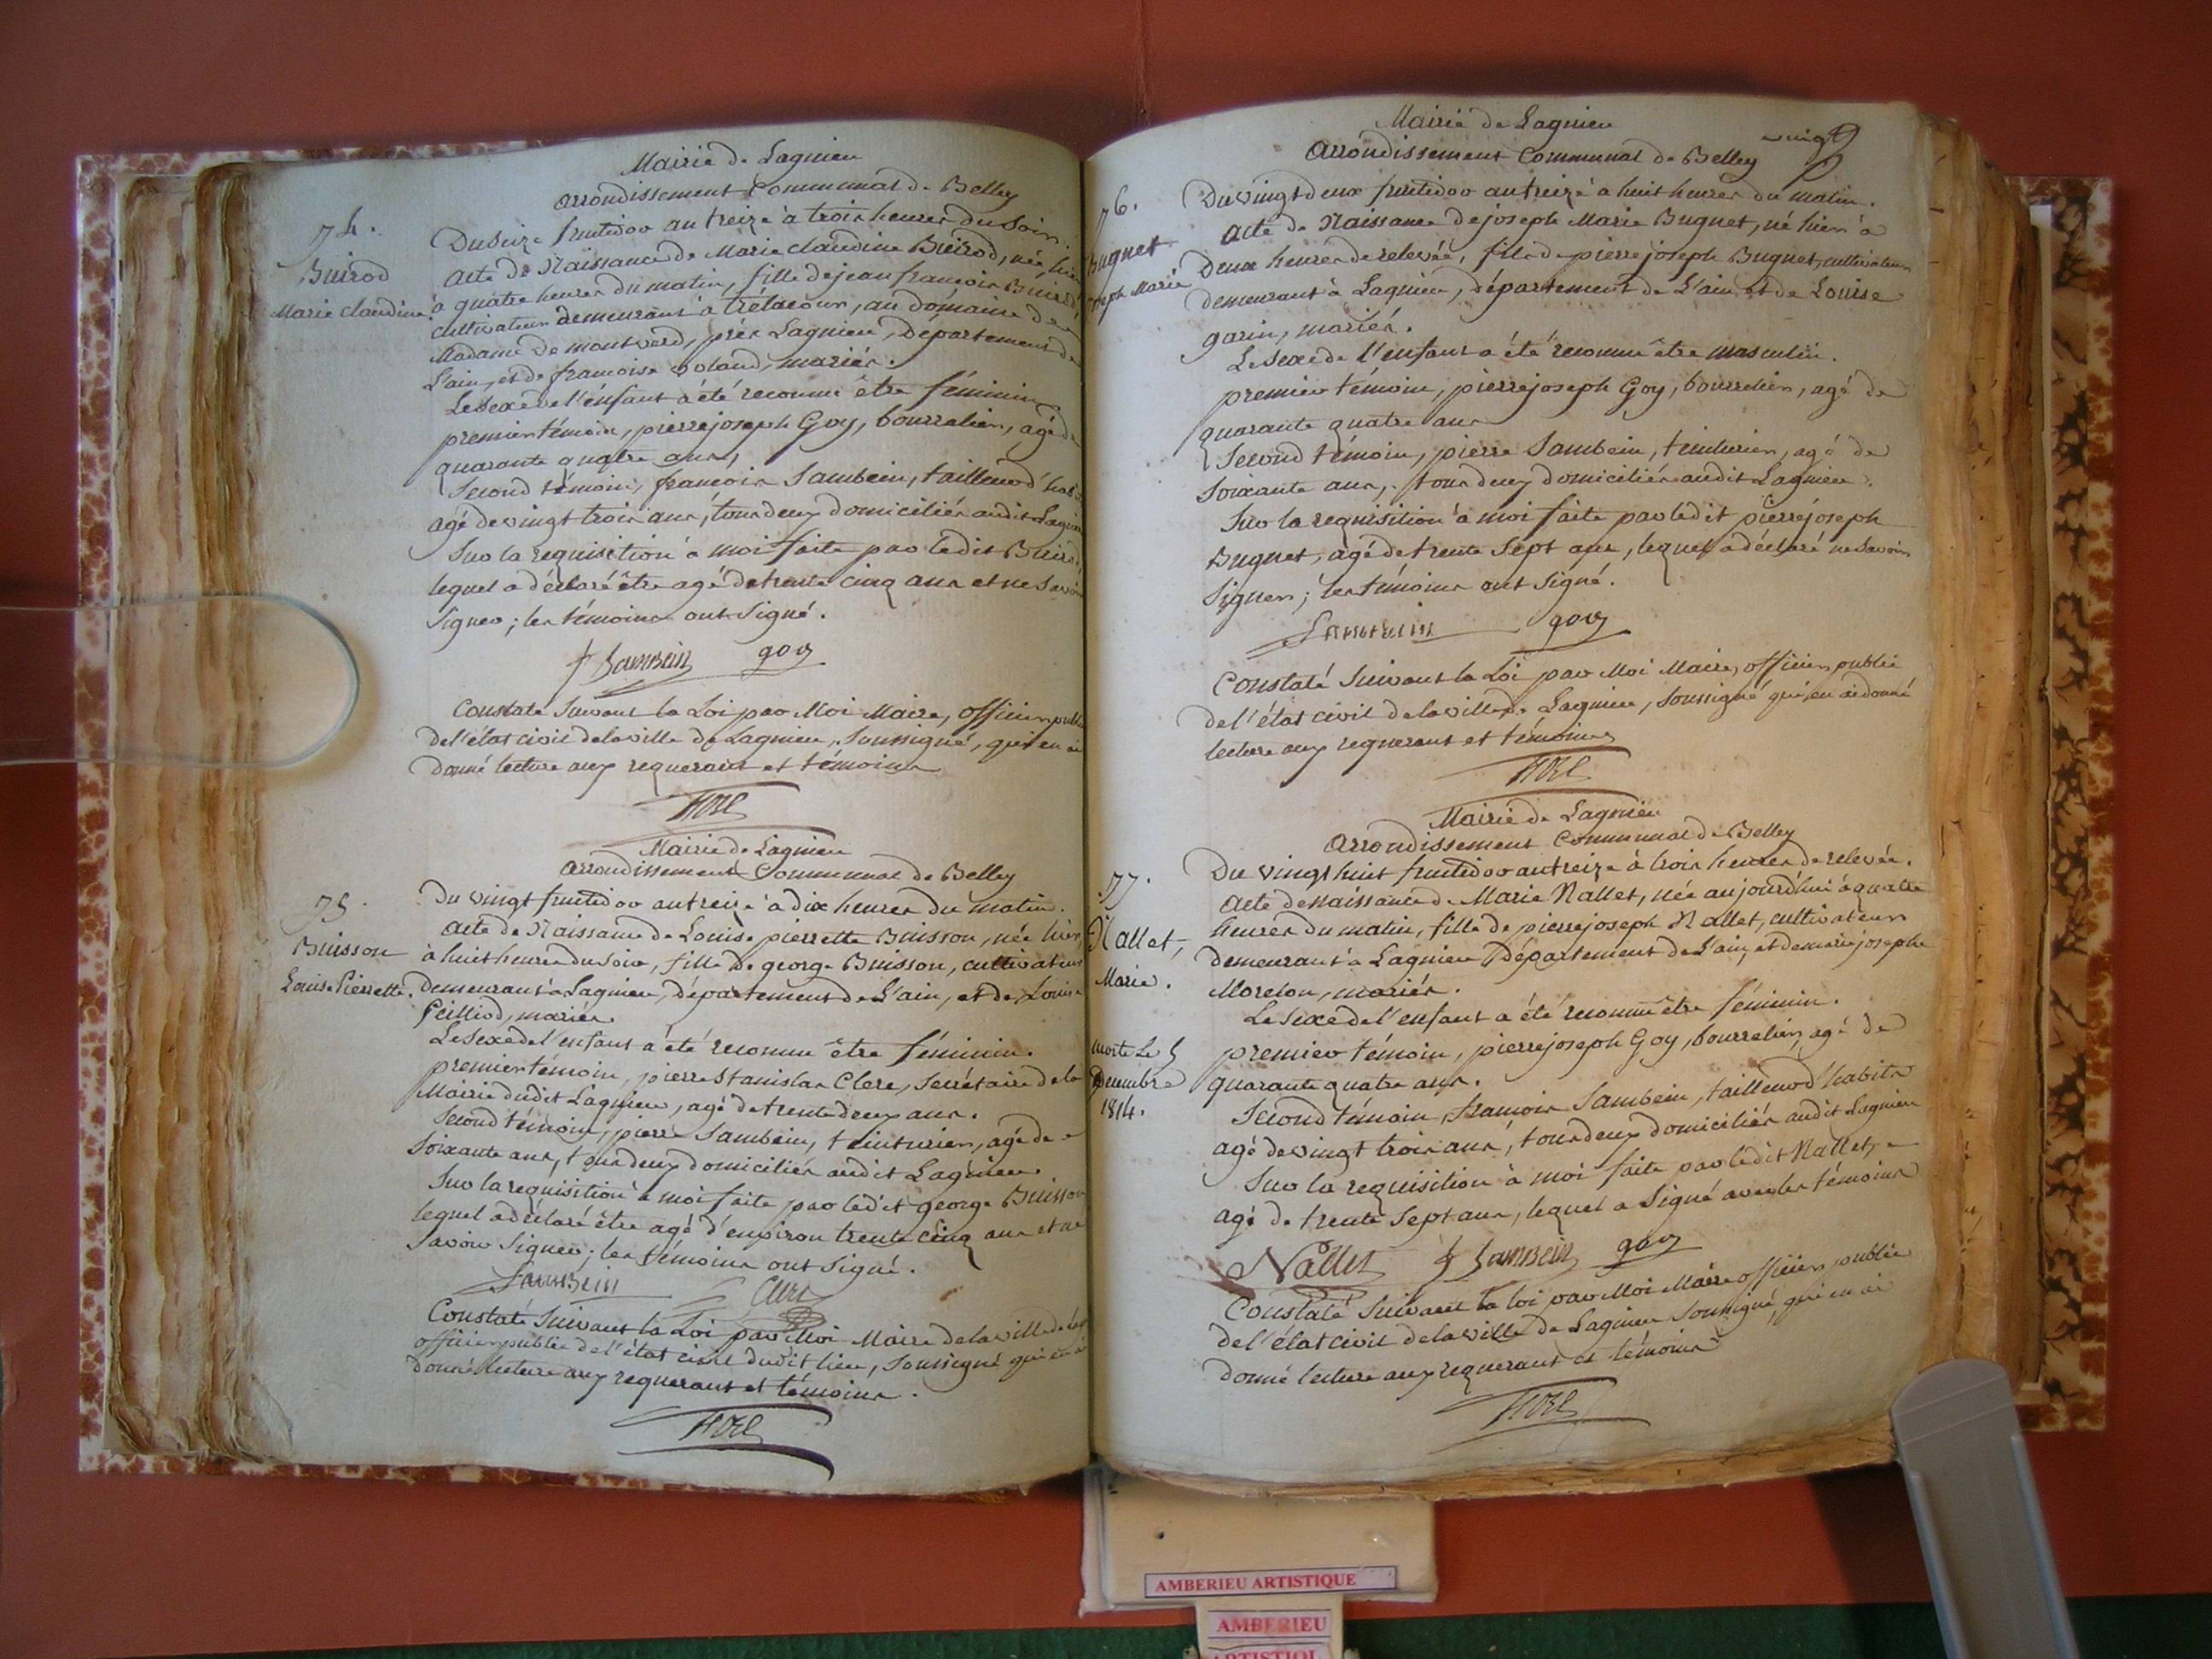 Mairie de Lagnieu
arrondissement Communal de Belley
74.
Buirod
Marie Claudine.
Du Seize fructidor an treize à trois heures du Soir.
acte de Naissance de Marie Claudine Buirod, née hier
à quatre heures du matin, fille de jean françois Buirod,
cultivateur demeurant à             au domaine de
Madame de montverd, près Lagnieu, Département de
L'ain, et de françoise        mariés.
Le Sexe de l'enfant a été reconnu être féminin
premier témoin, pierre joseph Goy, bourrelier, agé de
quarante quatre ans,
Second témoin, françois Sambein, tailleur d'habits
agé de vingt trois ans, tous deux domiciliés audit Lagnieu
Sur la requisition à moi faite par ledit Buirod,
lequel a déclaré être agé de trente cinq ans et ne Savoir
Signer; les témoins ont Signé.
f Sambein goy
Constaté Suivant la Loi par Moi Maire, officier public
de l'état civil de la ville de Lagnieu, Soussigné, qui en ai
donné lecture aux requerant et témoins
Mairie de Lagnieu
arrondissement Communal de Belley
75.
Buisson
Louise Pierrette.
Du vingt fructidor an treize à dix heures du matin.
acte de Naissance de Louise pierrette Buisson, née hier,
à huit heures du Soir, fille de george Buisson, cultivateur
demeurant à Lagnieu, département de L'ain, et de Louise
       mariés
Le Sexe de l'enfant a été reconnu être féminin.
premier témoin, pierre Stanislas Clerc, Secrétaire de la
Mairie dudit Lagnieu, agé de trente deux ans.
Second témoin, pierre Sambein, teinturier, agé de
Soixante ans, tous deux domiciliés audit Lagnieu.
Sur la requisition à moi faite par ledit george Buisson
lequel a déclaré être agé d'environ trente cinq ans et ne
Savoir Signer; les témoins ont Signé.
Sambein Clerc
Constaté Suivant la Loi par Moi Maire de la ville de
officier public de l'état civil dudit lieu, Soussigné qui en ai
donné lecture aux requerant et témoins.
Mairie de Lagnieu
arrondissement Communal de Belley
vingt 9
76.
Bugnet
joseph Marie
Du vingt deux fructidor an treize à huit heures du matin.
acte de Naissance de joseph Marie Bugnet, né hier à
Deux heures de relevée, fils de pierre joseph Bugnet, cultivateur
demeurant à Lagnieu, département de L'ain et de Louise
garin, mariés.
Le Sexe de l'enfant a été reconnu être masculin.
premier témoin, pierre joseph Goy, bourrelier, agé de
quarante quatre ans
Second témoin, pierre Sambein, teinturier, agé de
Soixante ans, tous deux domiciliés audit Lagnieu.
Sur la requisition à moi faite par ledit pierre joseph
Bugnet, agé de trente Sept ans, lequel a déclaré ne Savoir
Signer; les témoins ont Signé.
Sambein goy
Constaté Suivant la Loi par Moi Maire, officier public
de l'état civil de la ville de Lagnieu, soussigné qui en ai donné
lecture aux requerant et témoins
Mairie de Lagnieu
arrondissement Communal de Belley
77.
Nallet,
Marie.
morte Le 5
Decembre
1814.
Du vingt huit fructidor an treize à trois heures de relevée.
acte de naissance de Marie Nallet, née aujourd'hui à quatre
heures du matin, fille de pierre joseph Nallet, cultivateur
demeurant à Lagnieu Département de L'ain, et de marie josephe
Morelon, mariés.
Le Sexe de l'enfant a été reconnu être féminin.
premier témoin, pierre joseph Goy, bourrelier, agé de
quarante quatre ans.
Second témoin, françois Sambein, tailleur d'habits
agé de vingt trois ans, tous deux domiciliés audit Lagnieu
Sur la requisition à moi faite par ledit Nallet,
agé de trente Sept ans, lequel a Signé avec les témoins
Nallet f Sambein goy
Constaté Suivant la loi par Moi Maire officier public
de l'état civil de la ville de Lagnieu Soussigné, qui en ai
donné lecture aux requerant et témoins
AMBERIEU ARTISTIQUE
AMBERIEU